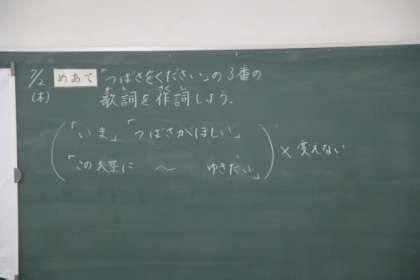 7/2 めあて 「つばさをください」の3番の
(木) 歌詞を作詞しよう。
か し さくし
「いま」「つばさがほしい」
「この大空に 〜 ゆきたい」
× 変えない